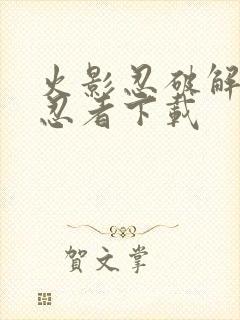 火影忍破解
忍者下載
賀文掌